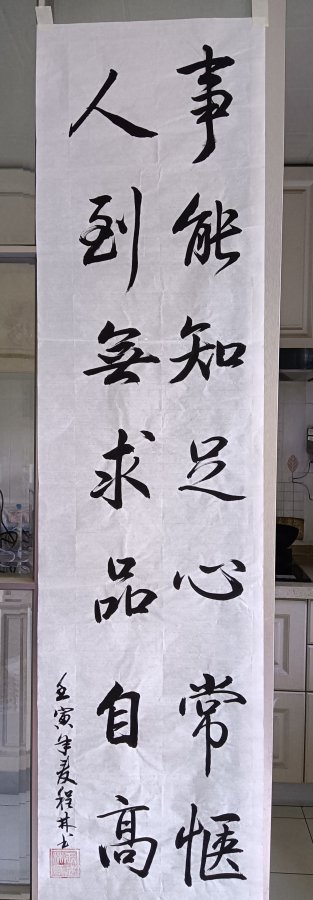 事能知足心常惬
人到無求品自高
壬寅年夏程林书